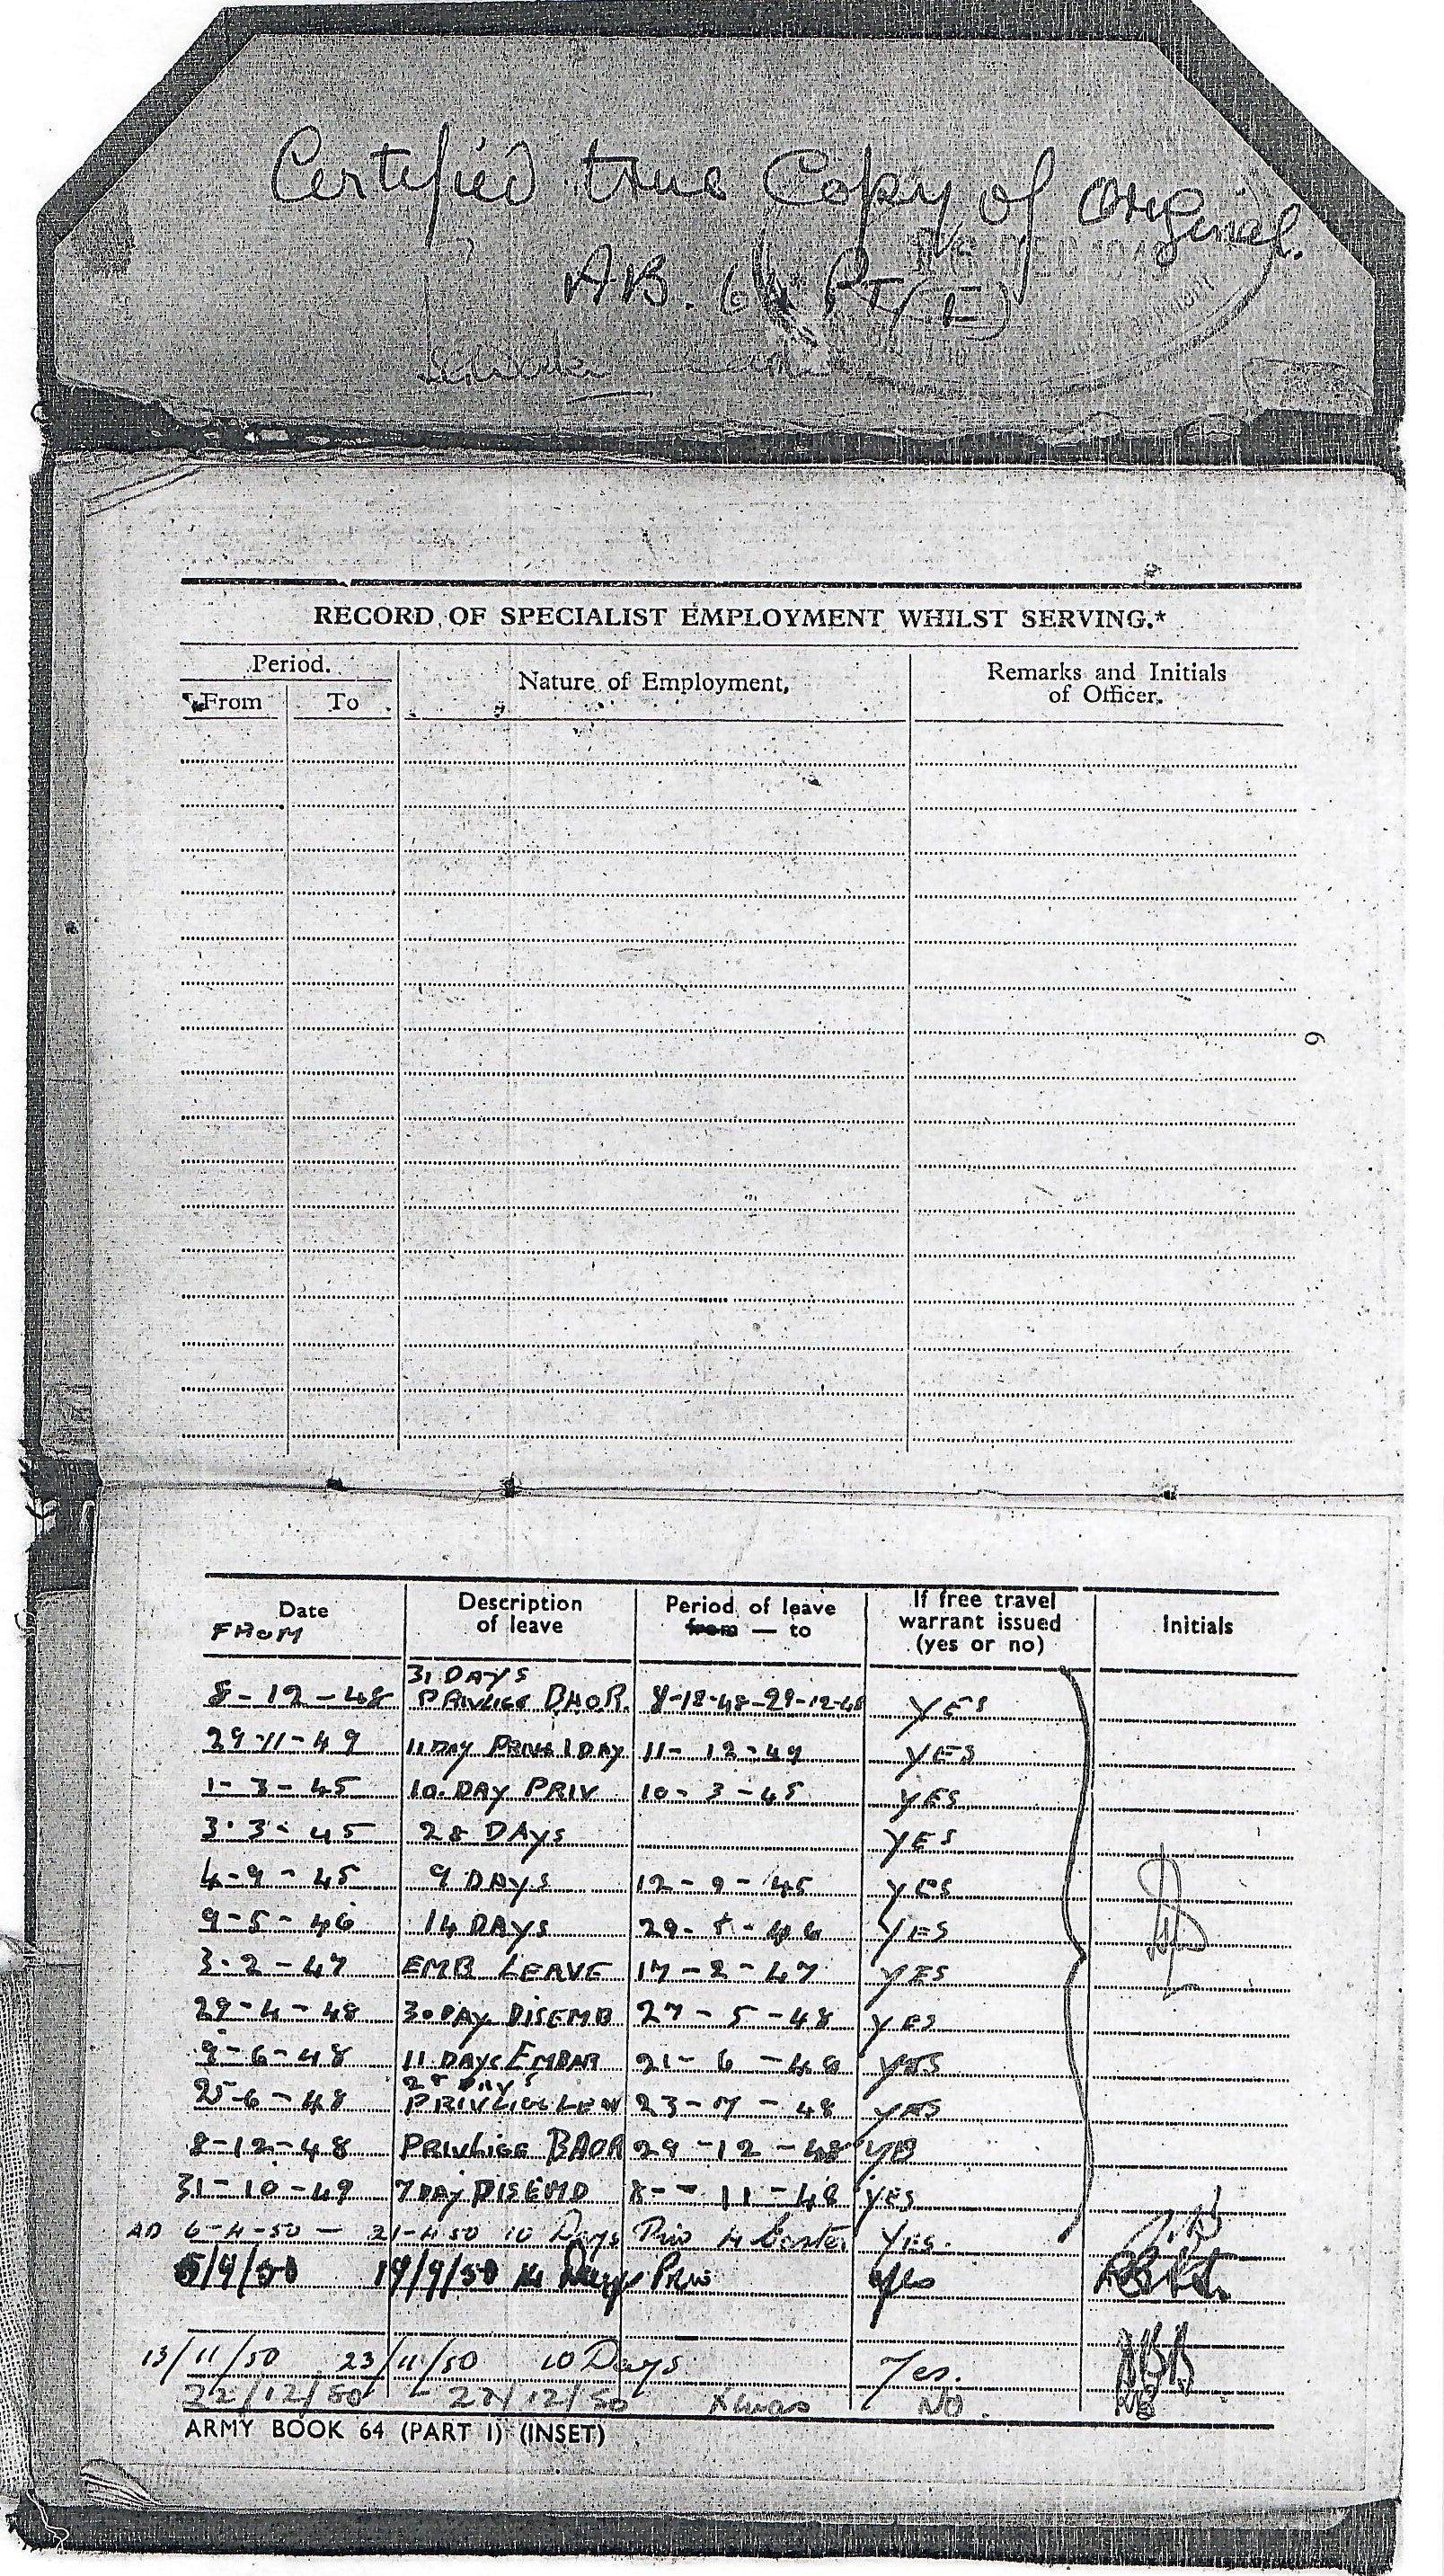 Certified true Copy of Original.
AB. 64 PT (I)
DEC
RECORD OF SPECIALIST EMPLOYMENT WHILST SERVING.*
Period. Nature of Employment, Remarks and Initials
From To of Officer.
6
Date Description Period of leave If free travel Initials
FROM of leave from — to warrant issued
(yes or no)
31 DAYS
8-12-48 PRIVLIGE B.A.O.R. 8-12-48-29-12-48 YES
29-11-49 11 DAY PRIV 1 DAY 11-12-49 YES
1-3-45 10. DAY PRIV 10-3-45 YES
3.3-45 28 DAYS YES
4-9-45 9 DAYS 12-9-45 YES
9-5-46 14 DAYS 29-5-46 YES
3-2-47 EMB LEAVE 17-2-47 YES
29-4-48 30 DAY DISEMB 27-5-48 YES
9-6-48 11 DAYS EMBAR 21-6-48 YES
28 DAYS
25-6-48 PRIVLIGE LEAV 23-7-48 YES
8-12-48 PRIVLIGE BAOR 29-12-48 YES
31-10-49 7 DAY DISEMB 8--11-48 YES
AD 6-4-50 — 21-4-50 10 Days Priv 4 Easter Yes.
5/9/50 19/9/50 14 Days Priv Yes
13/11/50 23/11/50 10 Days Yes.
22/12/50 - 27/12/50 Xmas NO.
ARMY BOOK 64 (PART I) (INSET)